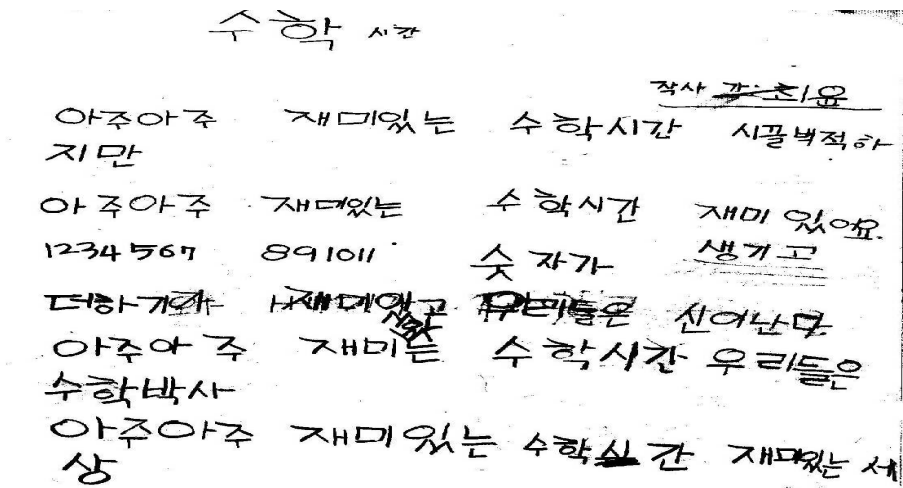 수학 시간
작사 최윤
아주아주 재미있는 수학시간 시끌벅적하
지만
아주아주 재미있는 수학시간 재미있어요.
1234567 891011 숫자가 생기고
더하기 재미있고 우리들은 신이난다
아주아주 재미는 수학시간 우리들은
수학박사
아주아주 재미있는 수학시간 재미있는 세
상